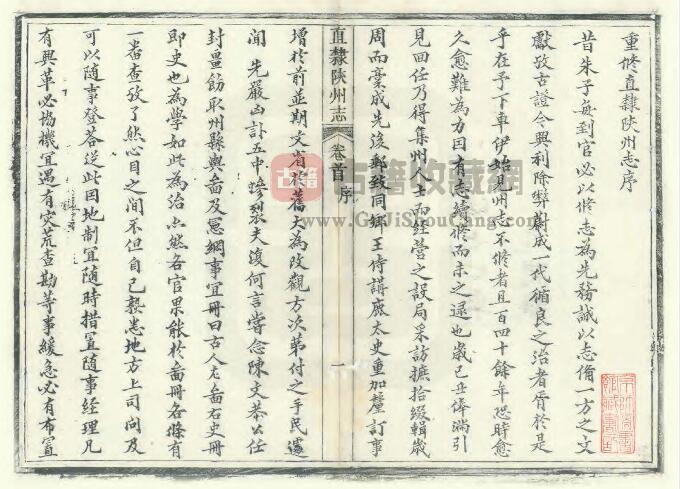 重修直隸陝州志序
昔朱子每到官必以修志為先務誠以志備一方之文
獻攷古證今興利除弊蔚成一代循良之治者胥於是
乎在予下車伊始見州志不修者且百四十餘年恐時愈
久愈難為力因有志續修而未之逮也歲己丑俸滿引
見回任乃得集州人士而經營之設局采訪摭拾綴輯歲
周而稾成先後郵致同鄉王侍講庶太史重加釐訂事
直隸陝州志
卷首 序
一
增於前並期文省於舊大為改觀方次第付之手民遽
聞 先嚴凶訃五中慘裂夫復何言嘗念陳文恭公任
封疆飭取州縣輿畵及冕綱事宜冊曰古人左畵右史冊
即史也為學如此為治亦然各官果能於畵冊各條有
一番查攷了然心目之間不但自己熟悉地方上司問及
可以隨事登荅從此因地制宜隨時措置隨事經理凡
有興革必協機宜遇有灾荒查勘等事緩急必有布置
古籍收藏網
www.GuJiShouCang.com